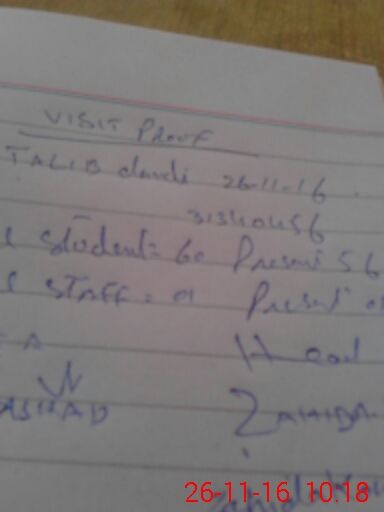 VISIT Proof
TALIB dandi 26-11-16
31340456
l Student = 60 Present 56
l STAFF = 01 Present 0
A Head
ASHAD
26-11-16 10:18